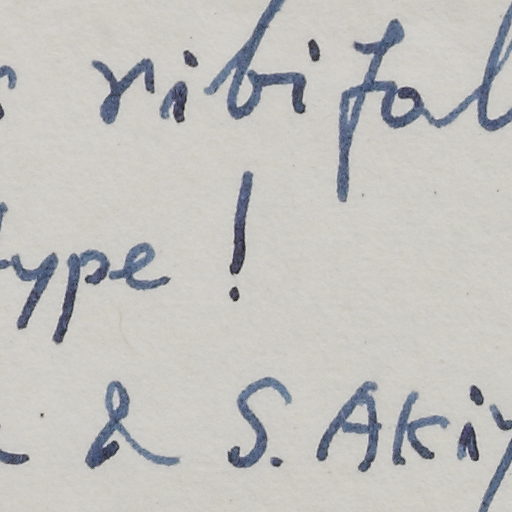 ribifal
type !
& S. Akiy